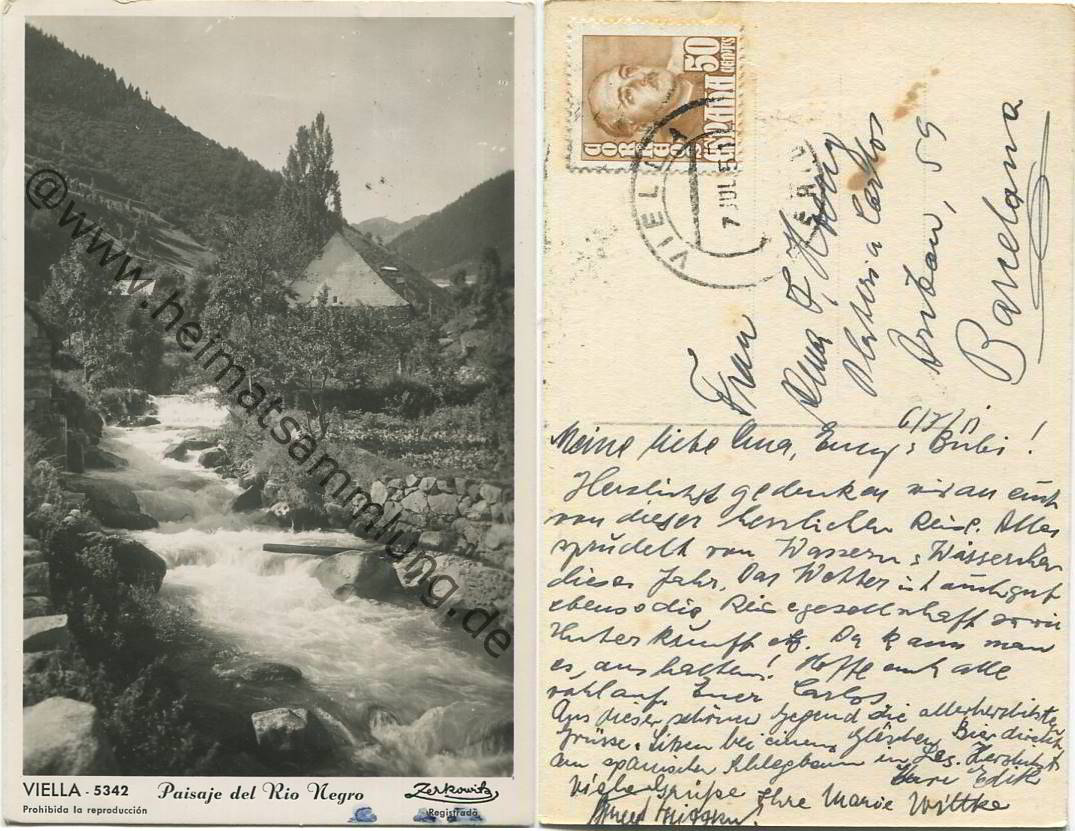 @www.heimatsammlung.de
VIELLA - 5342 Paisaje del Rio Negro Zerkowitz
Prohibida la reproducción Registrado
ESPAÑA 50
CORREOS
VIELLA
7 JUL 51
Frau
Platería Carlos
59
Barcelona
Meine liebe Oma, Bubi!
Herzlichst gedenken wir an euch
von dieser herrlichen Reise. Alles
sprudelt von Wassern & Wässerchen
dieses Jahr. Das Wetter ist auch gut
ebenso die Reisegesellschaft sowie
Unterkunft etc. Da kann man
es aushalten! Hoffe euch alle
wohlauf. Euer Carlos
Aus dieser schönen Gegend die allerherzlichsten
Grüsse. Sitzen bei einem Gläschen Bier direkt
am spanischen Schlagbaum in Les. Herzlichst
Viele Grüße Ihre Marie Wittke